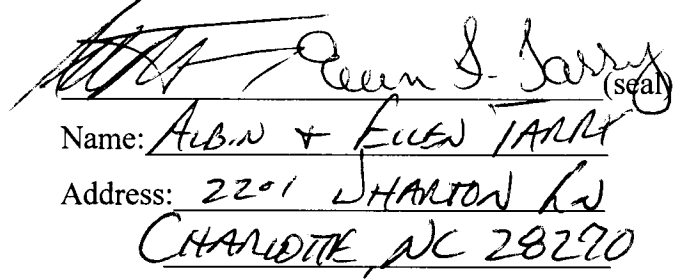 Ellen S. Tarry (seal)
Name: ALBIN + ELLEN TARRY
Address: 2201 WHARTON LN
CHARLOTTE, NC 28270